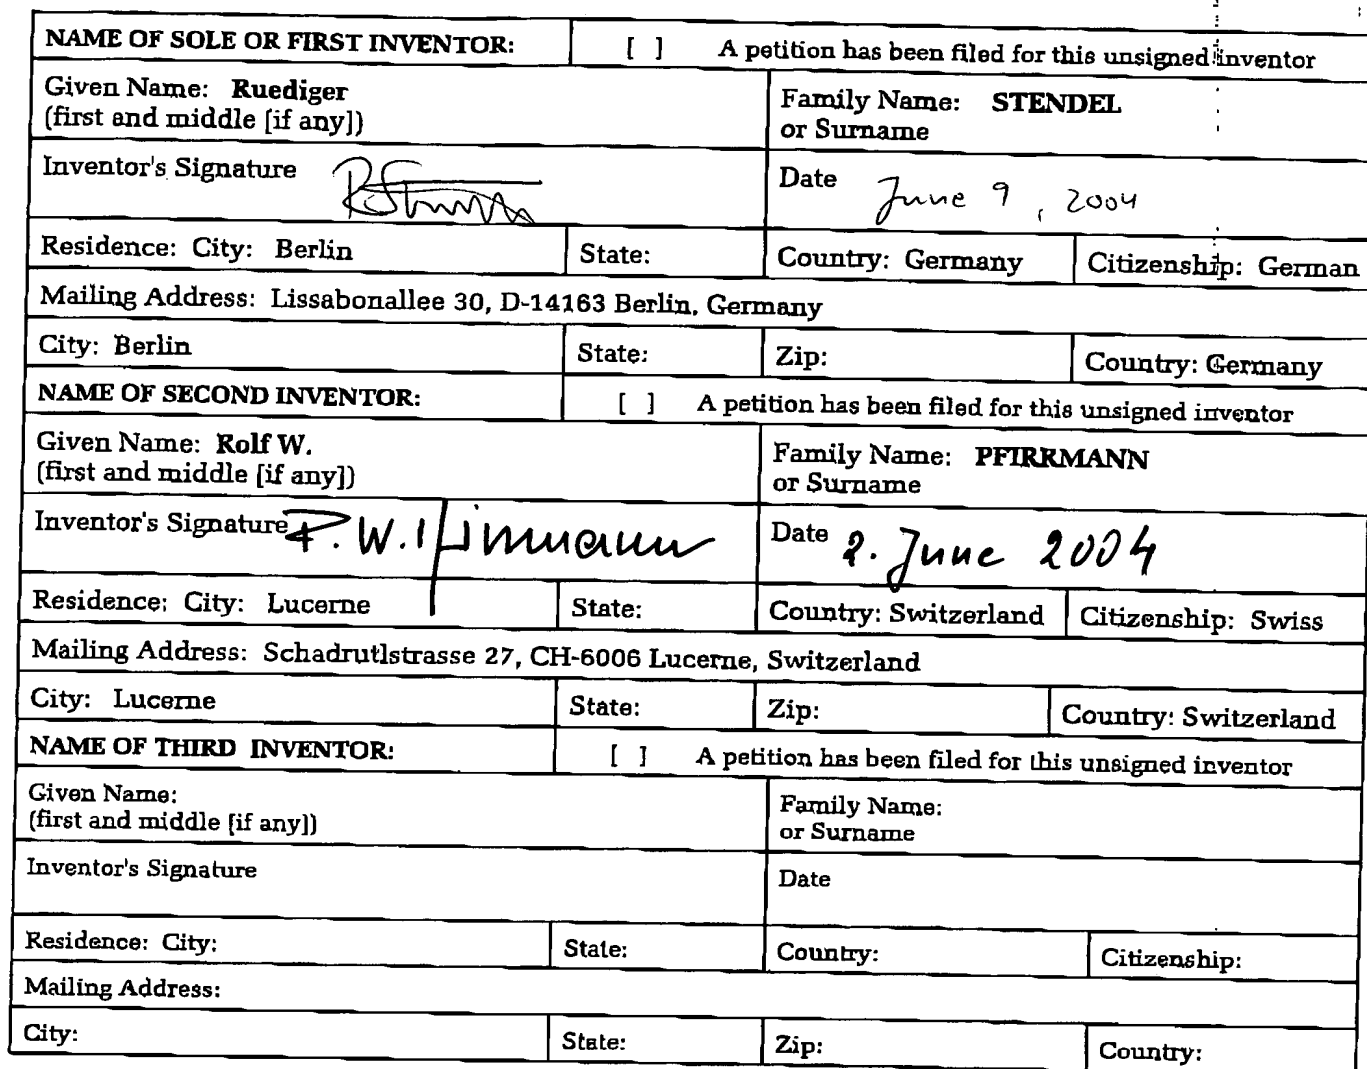 NAME OF SOLE OR FIRST INVENTOR: [ ] A petition has been filed for this unsigned inventor
Given Name: Ruediger Family Name: STENDEL
(first and middle [if any]) or Surname
Inventor's Signature Date June 9, 2004
Residence: City: Berlin State: Country: Germany Citizenship: German
Mailing Address: Lissabonallee 30, D-14163 Berlin, Germany
City: Berlin State: Zip: Country: Germany
NAME OF SECOND INVENTOR: [ ] A petition has been filed for this unsigned inventor
Given Name: Rolf W. Family Name: PFIRRMANN
(first and middle [if any]) or Surname
Inventor's Signature R. W. Pfirrmann Date 2. June 2004
Residence: City: Lucerne State: Country: Switzerland Citizenship: Swiss
Mailing Address: Schadrutlstrasse 27, CH-6006 Lucerne, Switzerland
City: Lucerne State: Zip: Country: Switzerland
NAME OF THIRD INVENTOR: [ ] A petition has been filed for this unsigned inventor
Given Name: Family Name:
(first and middle [if any]) or Surname
Inventor's Signature Date
Residence: City: State: Country: Citizenship:
Mailing Address:
City: State: Zip: Country: